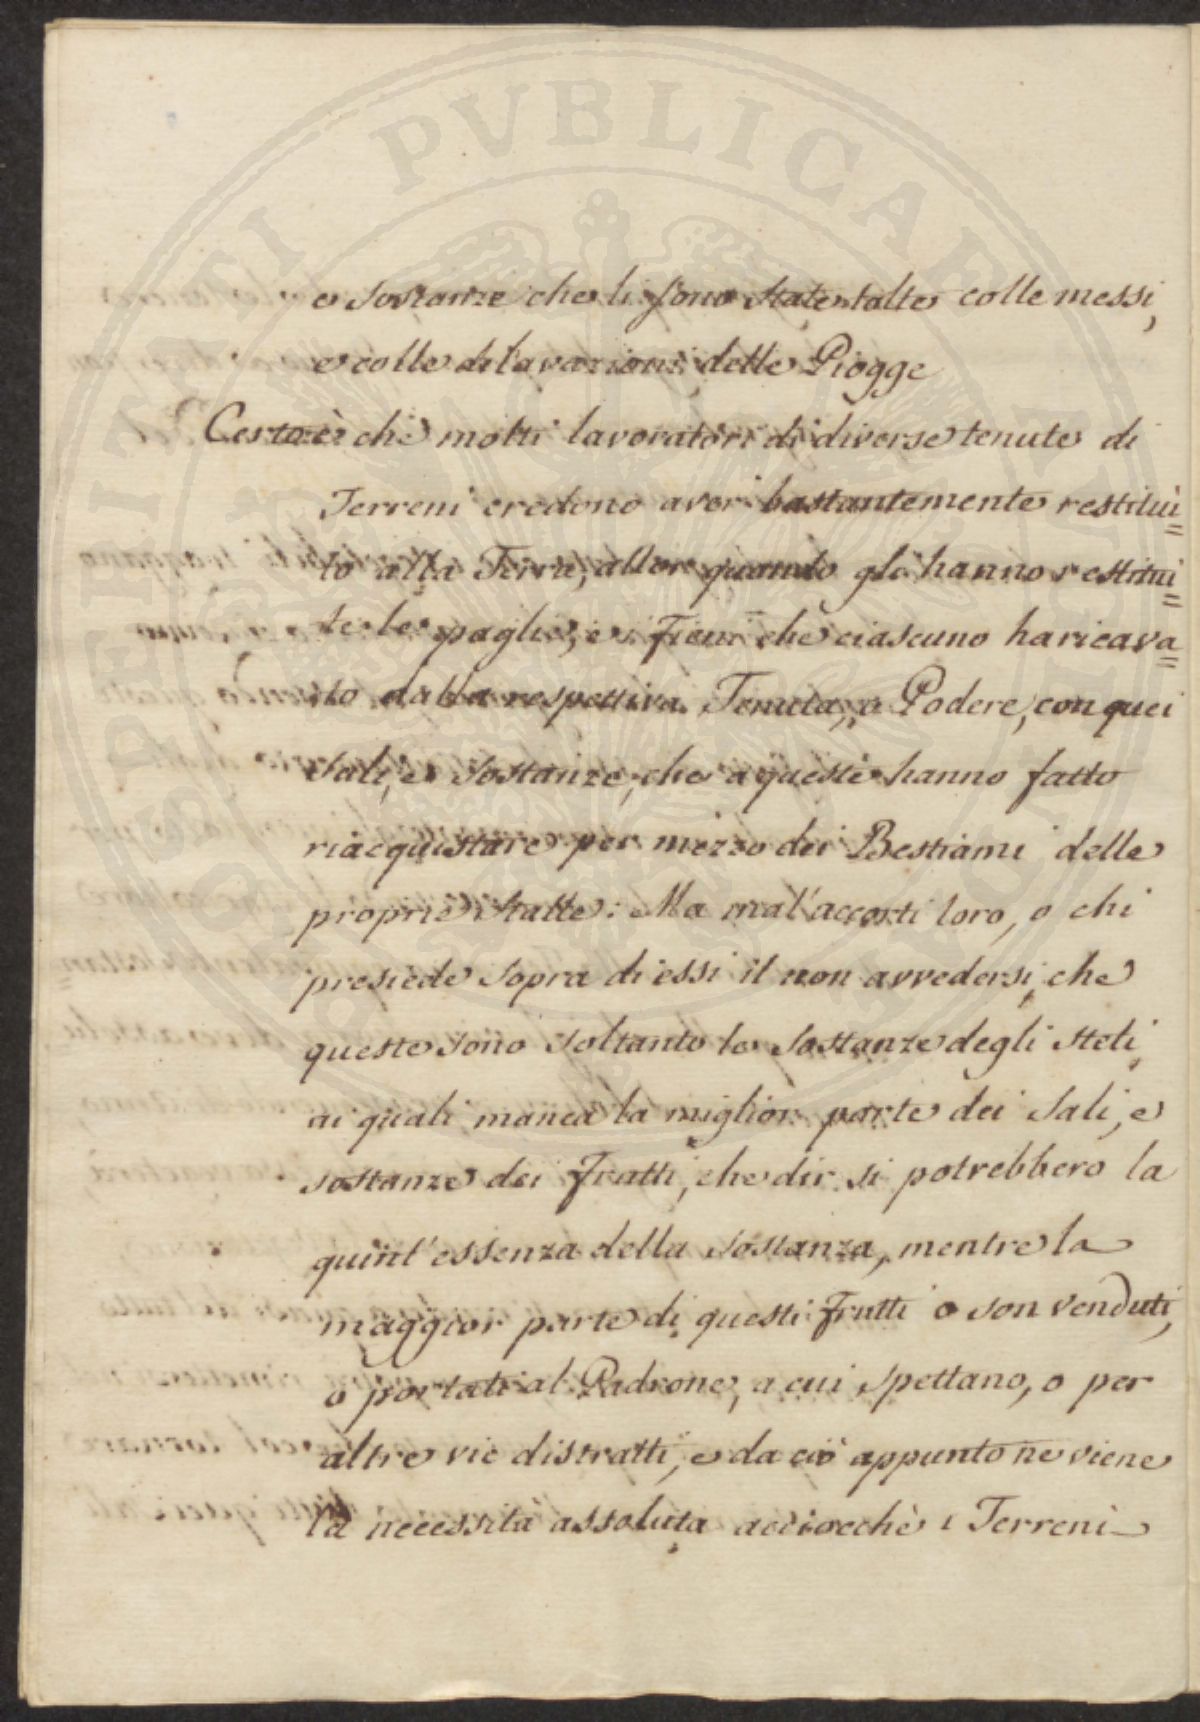 PROSPERITATI PUBLICAE AUGENDAE
e sostanze che li sono state tolte colle messi,
e colle dilavazioni delle Piogge
Certo è che molti lavoratori di diverse tenute di
Terreni credono aver bastantemente restitui=
to alla Terra, allor quando gli hanno restitui=
te le paglie, e i Fieni che ciascuno ha ricava=
to dalla respettiva Tenuta, o Podere, con quei
sali, e sostanze, che a questi hanno fatto
riacquistare per mezzo dei Bestiami delle
proprie stalle: Ma mal'accorti loro, o chi
presiede sopra di essi il non avvedersi, che
queste sono soltanto le sostanze degli steli
ai quali manca la miglior parte dei sali, e
sostanze dei Frutti, che dir si potrebbero la
quint'essenza della sostanza, mentre la
maggior parte di questi Frutti o son venduti,
o portati al Padrone, a cui spettano, o per
altre vie distratti, e da ciò appunto ne viene
la necessità assoluta acciocchè i Terreni